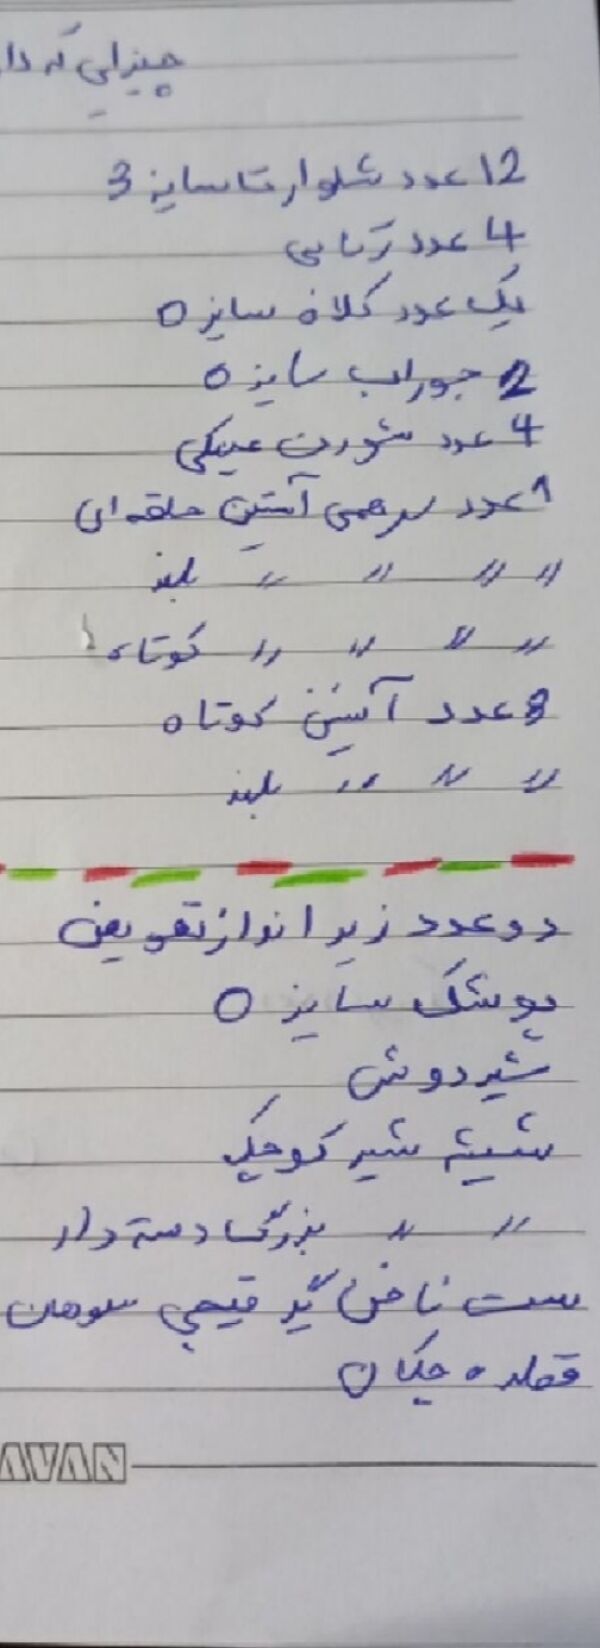 چیزایی که دا
12 عدد شلوار تا سایز 3
4 عدد رکابی
یک عدد کلاه سایز 0
2 جوراب سایز 0
4 عدد شورت عینکی
1 عدد سرهمی آستین حلقه ای
〃 〃 〃 〃 بلند
〃 〃 〃 〃 کوتاه
3 عدد آستین کوتاه
〃 〃 〃 بلند
دو عدد زیر انداز تعویض
پوشک سایز 0
شیردوش
شیشه شیر کوچک
〃 〃 بزرگ دسته دار
ست ناخن گیر قیچی سوهان
قطره چکان
AVAN